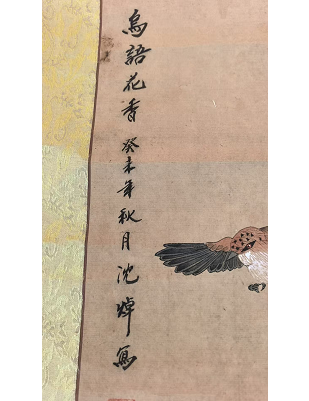 鳥語花香癸未年秋月沈焯寫